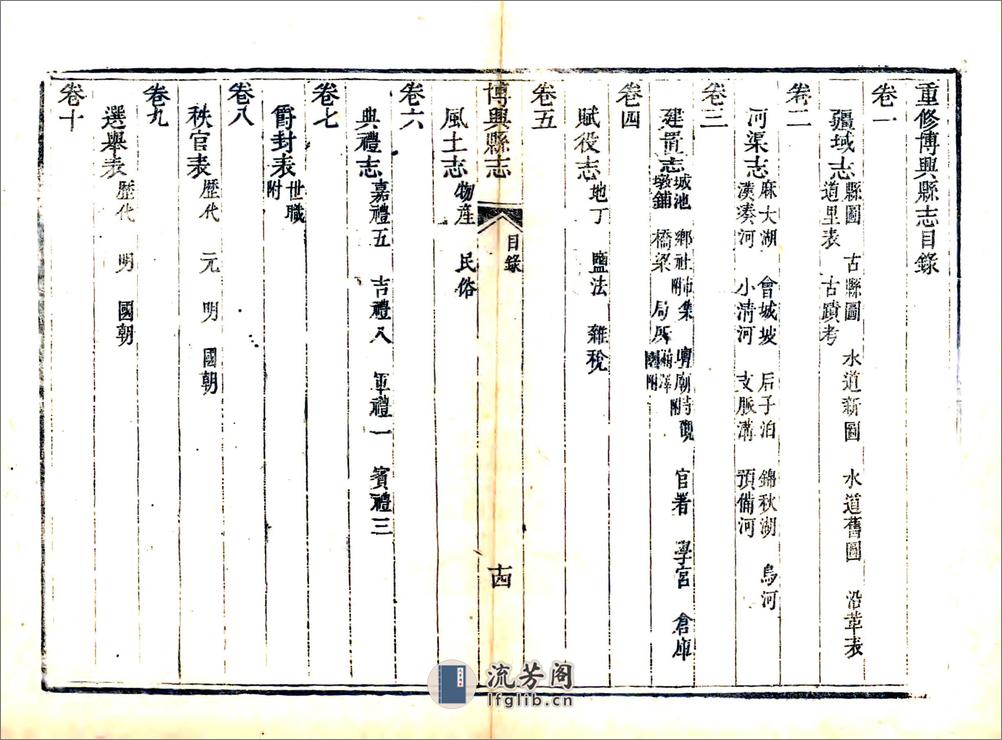 重修博興縣志目錄
卷一
疆域志 縣圖 古縣圖 水道新圖 水道舊圖 沿革表
道里表 古蹟考
卷二
河渠志 麻大湖 會城坡 后子泊 錦秋湖 烏河
瀆湊河 小清河 支脈溝 預備河
卷三
建置志 城池 鄉社 市集附 壇廟 寺觀附 官署 學宮 倉庫
墩鋪 橋梁 局所
卷四
賦役志 地丁 鹽法 雜稅
卷五
博興縣志 目錄 十四
風土志 物産 民俗
卷六
典禮志 嘉禮五 吉禮八 軍禮一 賓禮三
卷七
爵封表 世職附
卷八
秩官表 歷代 元 明 國朝
卷九
選舉表 歷代 明 國朝
卷十
流芳阁
lfglib.cn